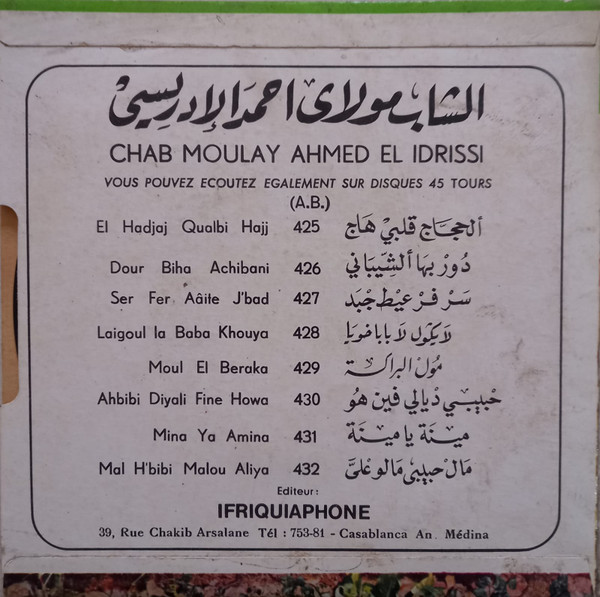 الشاب مولاي احمد الإدريسي
CHAB MOULAY AHMED EL IDRISSI
VOUS POUVEZ ECOUTEZ EGALEMENT SUR DISQUES 45 TOURS
(A.B.)
El Hadjaj Qualbi Hajj 425 ألحجَّاج قلبي هَاج
Dour Biha Achibani 426 دُورْ بهَا ألشِّيبَاني
Ser Fer Aâite J'bad 427 سَرْ فرْ عيْط جْبَد
Laigoul la Baba Khouya 428 لَا يݣول لَا بابا خويَا
Moul El Beraka 429 مُولْ البراكة
Ahbibi Diyali Fine Howa 430 حْبيبي دْيالي فين هُو
Mina Ya Amina 431 مينَة يا مينَة
Mal H'bibi Malou Aliya 432 مَالْ حبيبي مَالو عْليَّ
Editeur :
IFRIQUIAPHONE
39, Rue Chakib Arsalane Tél : 753-81 - Casablanca An. Médina